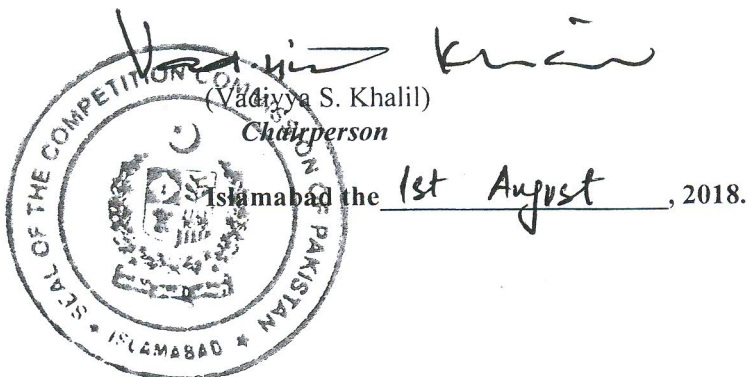 (Vadiyya S. Khalil)
Chairperson
Islamabad the 1st August, 2018.
SEAL OF THE COMPETITION COMMISSION OF PAKISTAN
* ISLAMABAD *